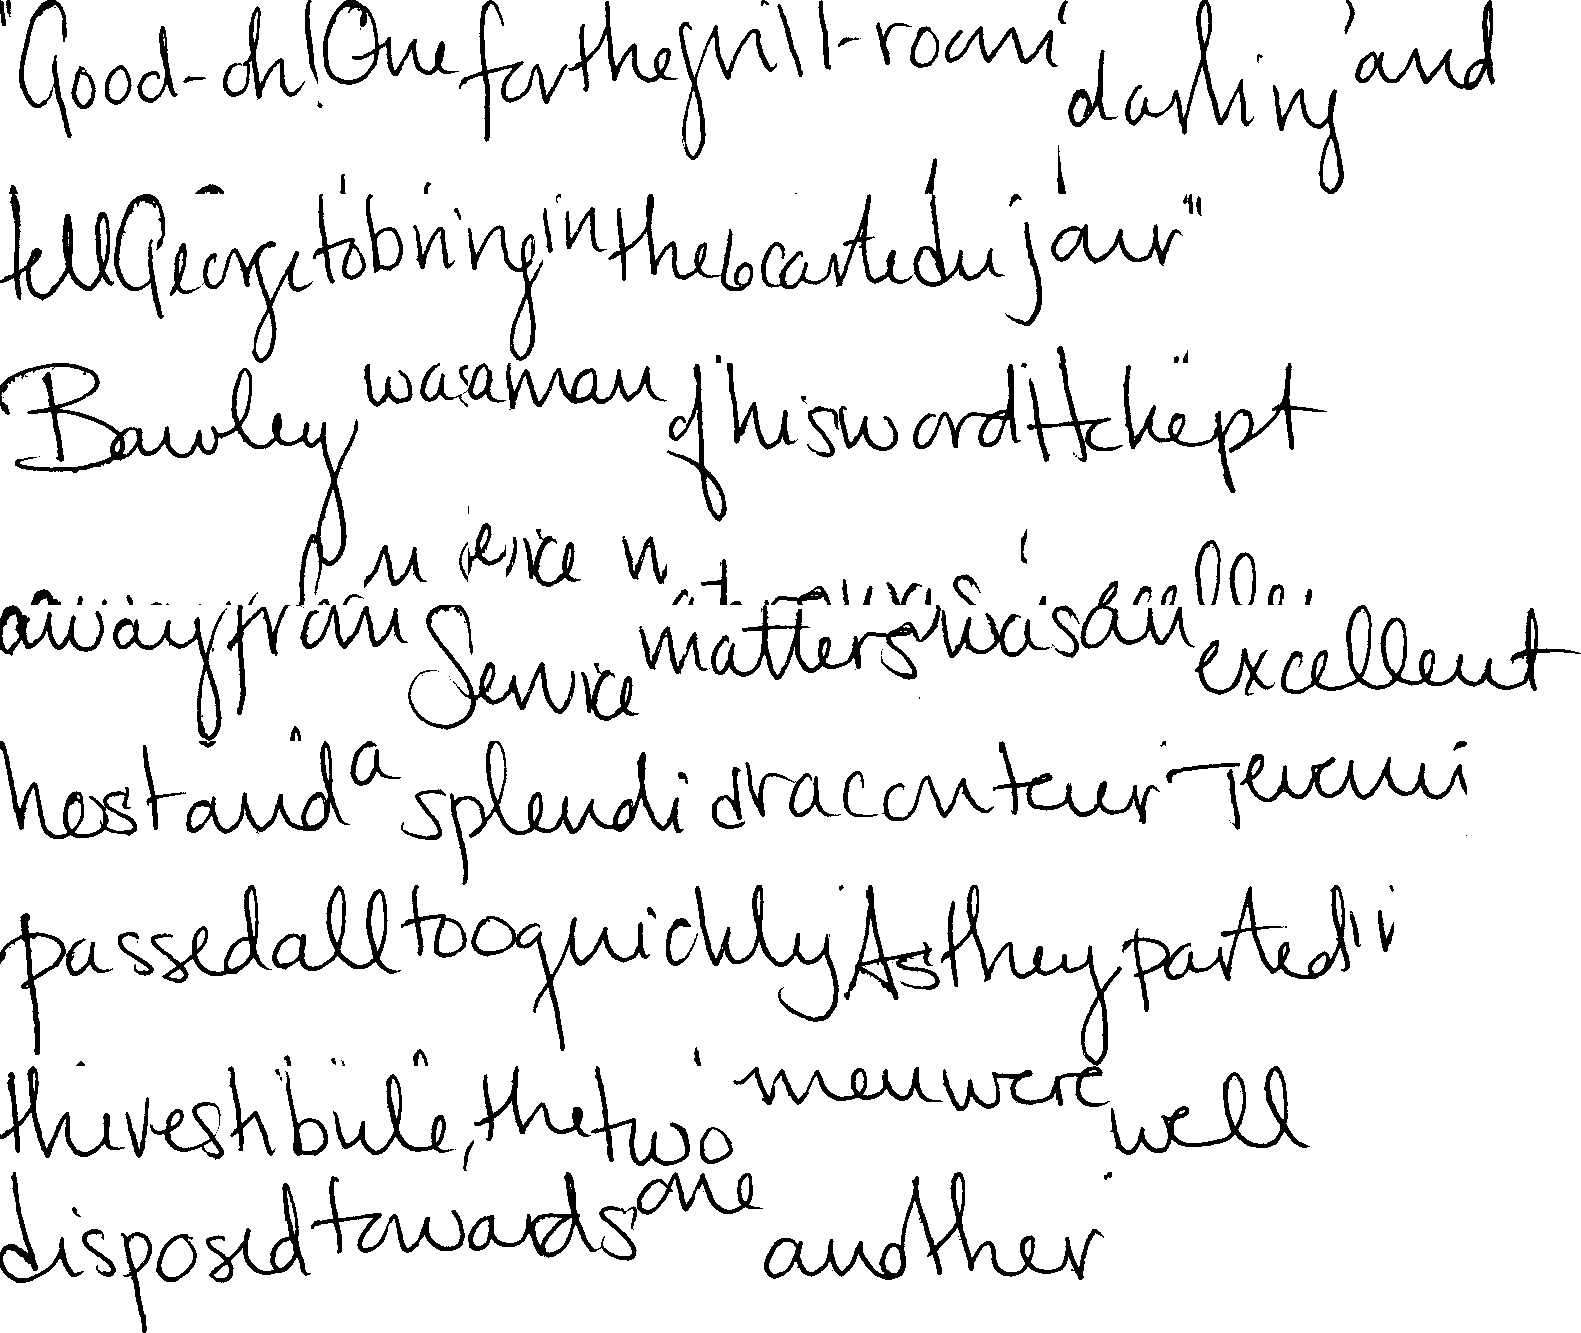 "Good-oh! One for the grill-room, darling, and
tell George to bring in the carte du jour"
Bawley was a man of his word He kept
away from Service matters was an excellent
host and a splendid raconteur
passed all too quickly As they parted
the vestibule, the two men were well
disposed towards one another